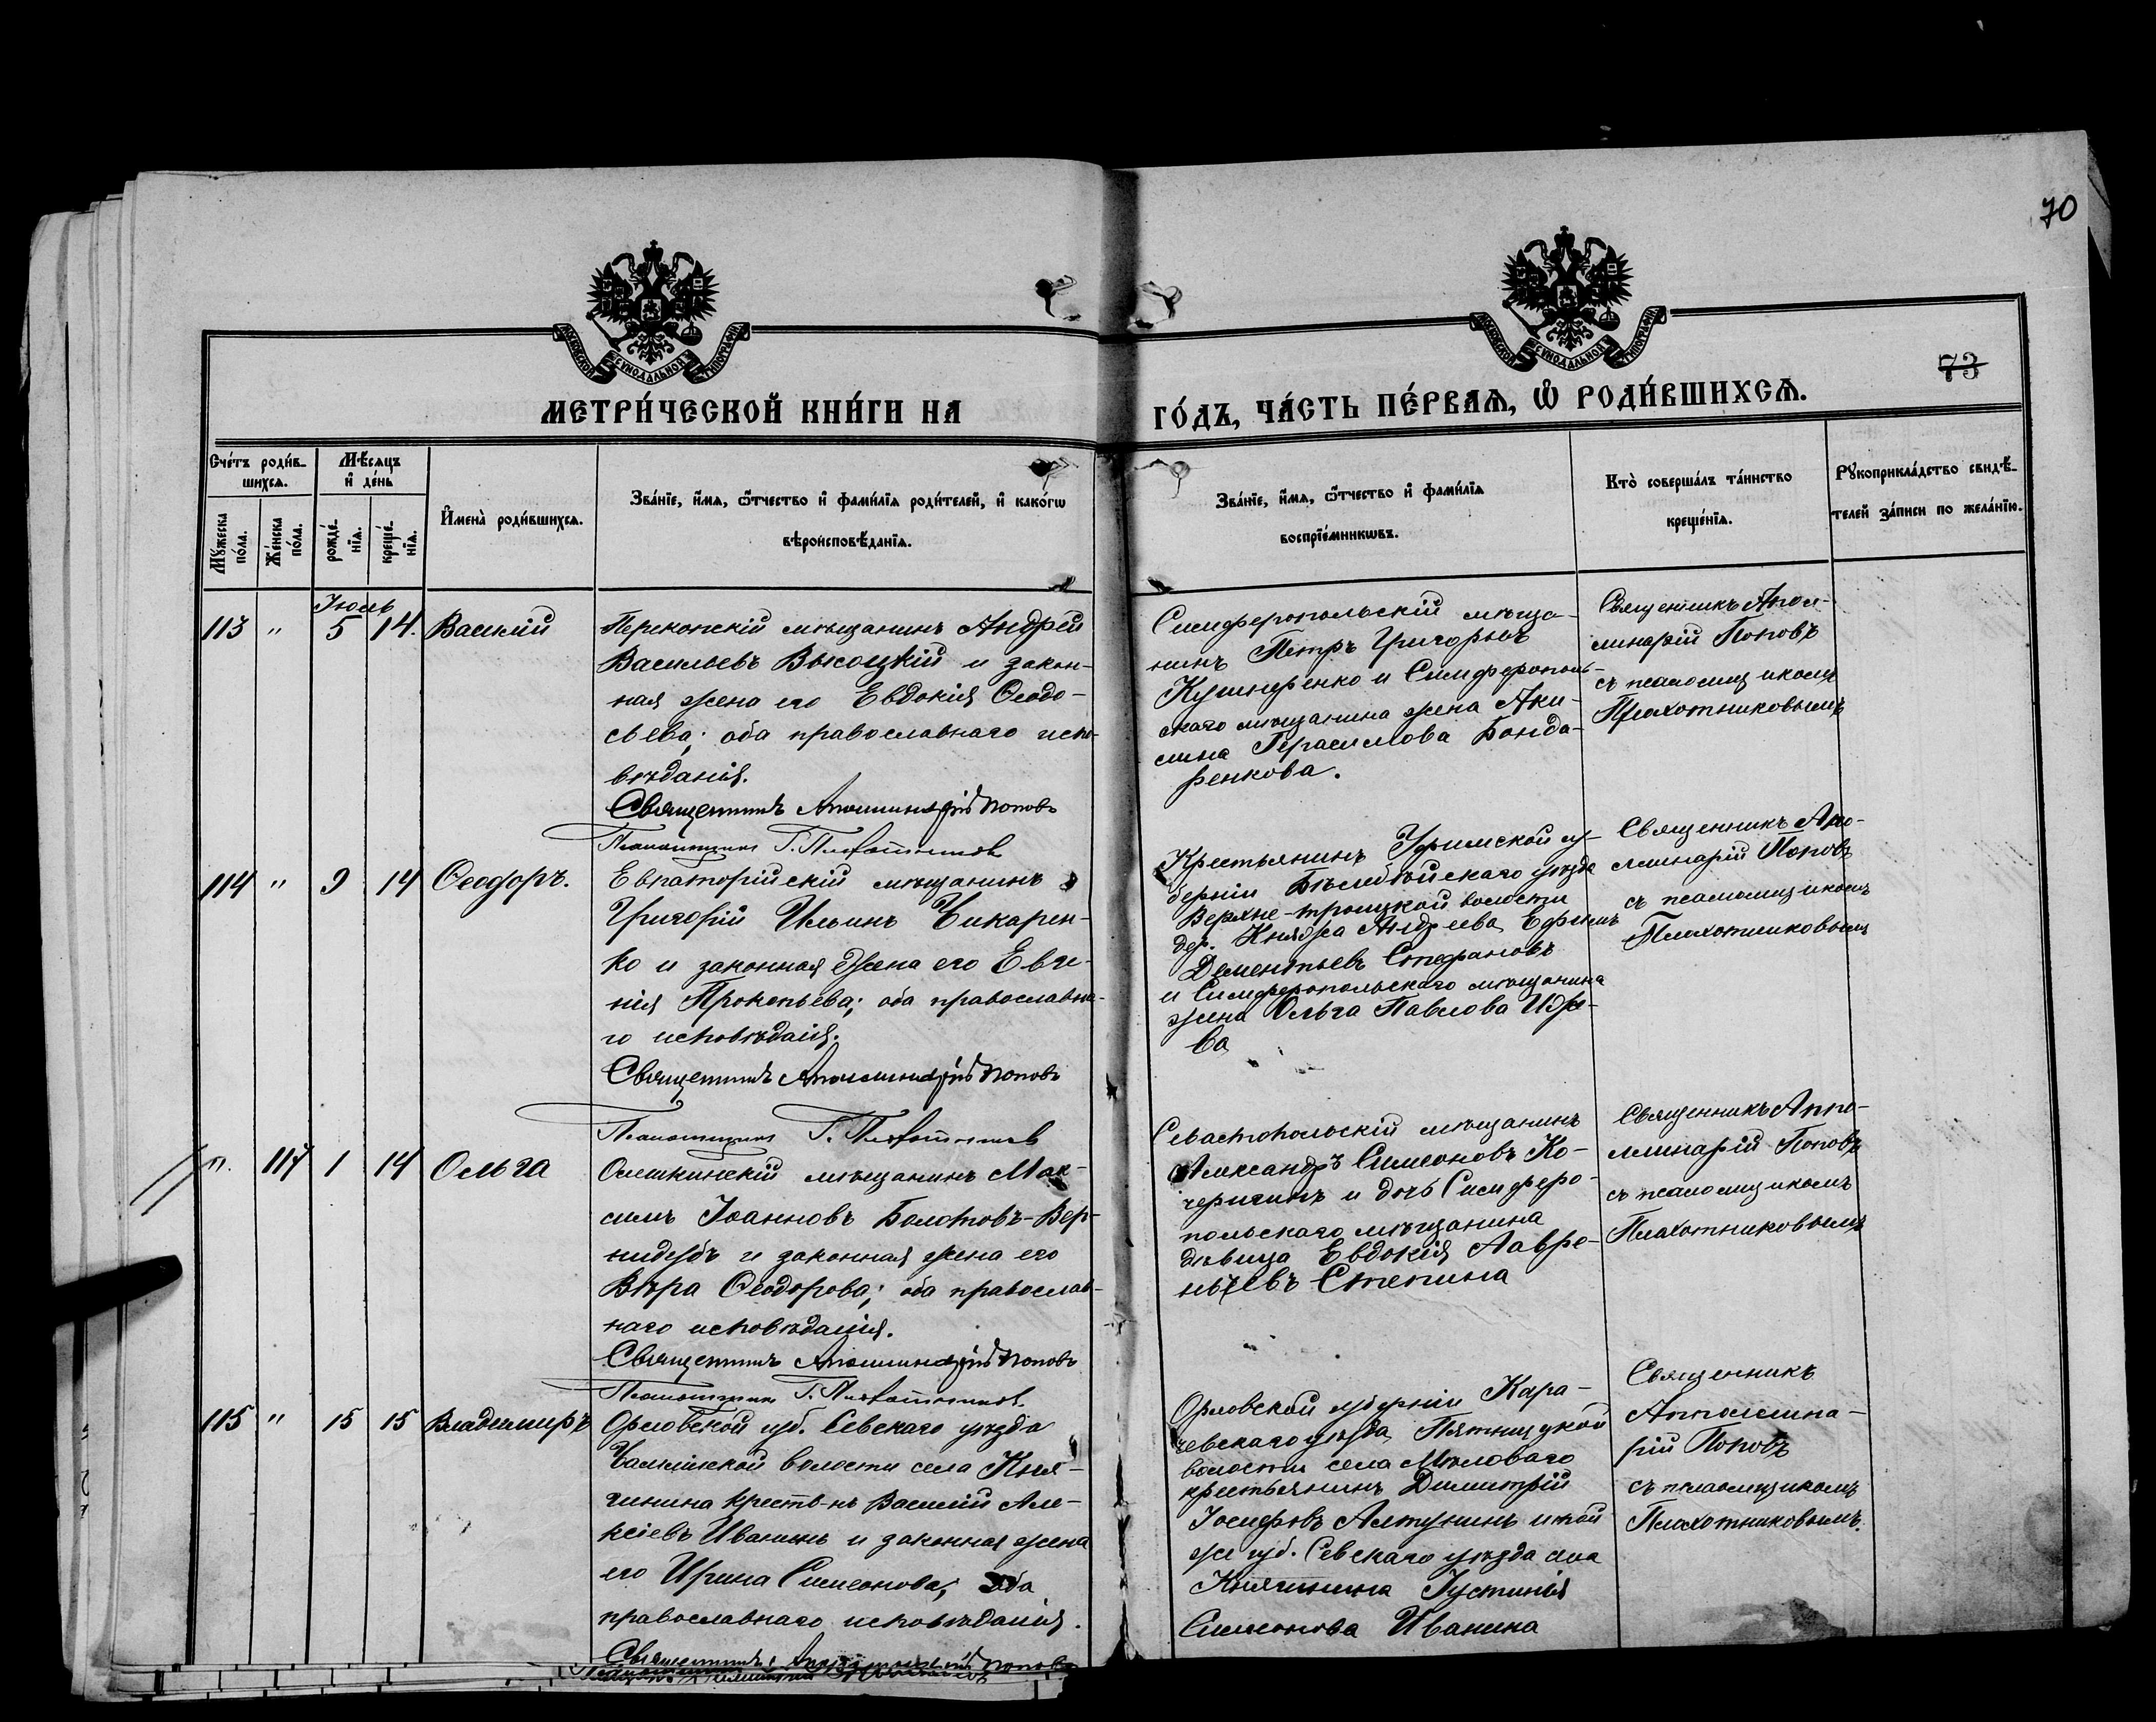 70
МОСКОВСКОЙ СУНОДАЛЬНОЙ ТИПОГРАФІИ
МОСКОВСКОЙ СУНОДАЛЬНОЙ ТИПОГРАФІИ
73
МЕТРИ́ЧЕСКОЙ КНИ́ГИ НА
ГО́ДЪ, ЧА́СТЬ ПЕ́РВАѦ, Ѽ РОДИ́ВШИХСѦ.
Сче́тъ роди́в-
шихсѧ.
Мѣ́сѧцъ
и҆ де́нь
Мꙋ́жеска
по́ла.
Же́нска
по́ла.
рожде́-
нїѧ.
креще́-
нїѧ.
И҆мена̀ роди́вшихсѧ.
Зва́нїе, и҆́мѧ, ѻ҆́тчество и҆ фами́лїѧ роди́телей, и҆ како́гѡ
вѣроисповѣ́данїѧ.
Зва́нїе, и҆́мѧ, ѻ҆́тчество и҆ фами́лїѧ
воспрїе́мникѡвъ.
Кто̀ соверша́лъ та́инство
креще́нїѧ.
Рꙋкоприкла́дство свидѣ́-
телей за́писи по жела́нїю.
Іюль
113 " 5 14. Василій
Перекопскій мѣщанинъ Андрей
Васильевъ Высоцкій и закон-
ная жена его Евдокія Ѳеодо-
сьева; оба православнаго испо-
вѣданія.
Священникъ Аполлинарій Поповъ
Псаломщикъ Г. Плохотниковъ
Симферопольскій мѣща-
нинъ Петръ Григорьевъ
Кушнеренко и Симферополь-
скаго мѣщанина жена Аки-
лина Герасимова Бонда-
ренкова.
Священникъ Апол-
линарій Поповъ
съ псаломщикомъ
Плохотниковымъ
114 " 9 14 Ѳеодоръ.
Евпаторійскій мѣщанинъ
Григорій Ильинъ Чикарен-
ко и законная жена его Евге-
нія Прокопьева; оба православна-
го исповѣданія.
Священникъ Аполлинарій Поповъ
Псаломщикъ Г. Плохотниковъ
Крестьянинъ Уфимской гу-
берніи Бѣлебѣйскаго уѣзда
Верхне-троицкой волости
дер. Князя Андреева Ефимъ
Дементьевъ Степановъ
и Симферопольскаго мѣщанина
жена Ольга Павлова
ва
Священникъ Апо-
линарій Поповъ
съ псаломщикомъ
Плохотниковымъ
". 117 1 14 Ольга
Олешкинскій мѣщанинъ Мак-
симъ Іоанновъ Болотовъ-Вер-
и законная жена его
Вѣра Ѳеодорова; оба православ-
наго исповѣданія.
Священникъ Аполлинарій Поповъ
Псаломщикъ Г. Плохотниковъ
Севастопольскій мѣщанинъ
Александръ Симеоновъ Ко-
черигинъ и дочь Симферо-
польскаго мѣщанина
дѣвица Евдокія Лавре-
Степина
Священникъ Аппо-
линарій Поповъ
съ псаломщикомъ
Плохотниковымъ
115 " 15 15 Владимиръ
Орловской губ. Севскаго уѣзда
волости села Кня-
гинина крест-нъ Василій Але-
ксіевъ Иванинъ и законная жена
его Ирина Симеонова; оба
православнаго исповѣданія.
Священникъ Аполлинарій Поповъ
Орловской губерніи Кара-
чевскаго уѣзда Пятницкой
волости села Мѣловаго
крестьянинъ Димитрій
Іосифовъ Алтунинъ и той
же губ. Севскаго уѣзда села
Княгинина Іустинія
Симеонова Иванина
Священникъ
Апполлина-
рій Поповъ
съ псаломщикомъ
Плохотниковымъ.